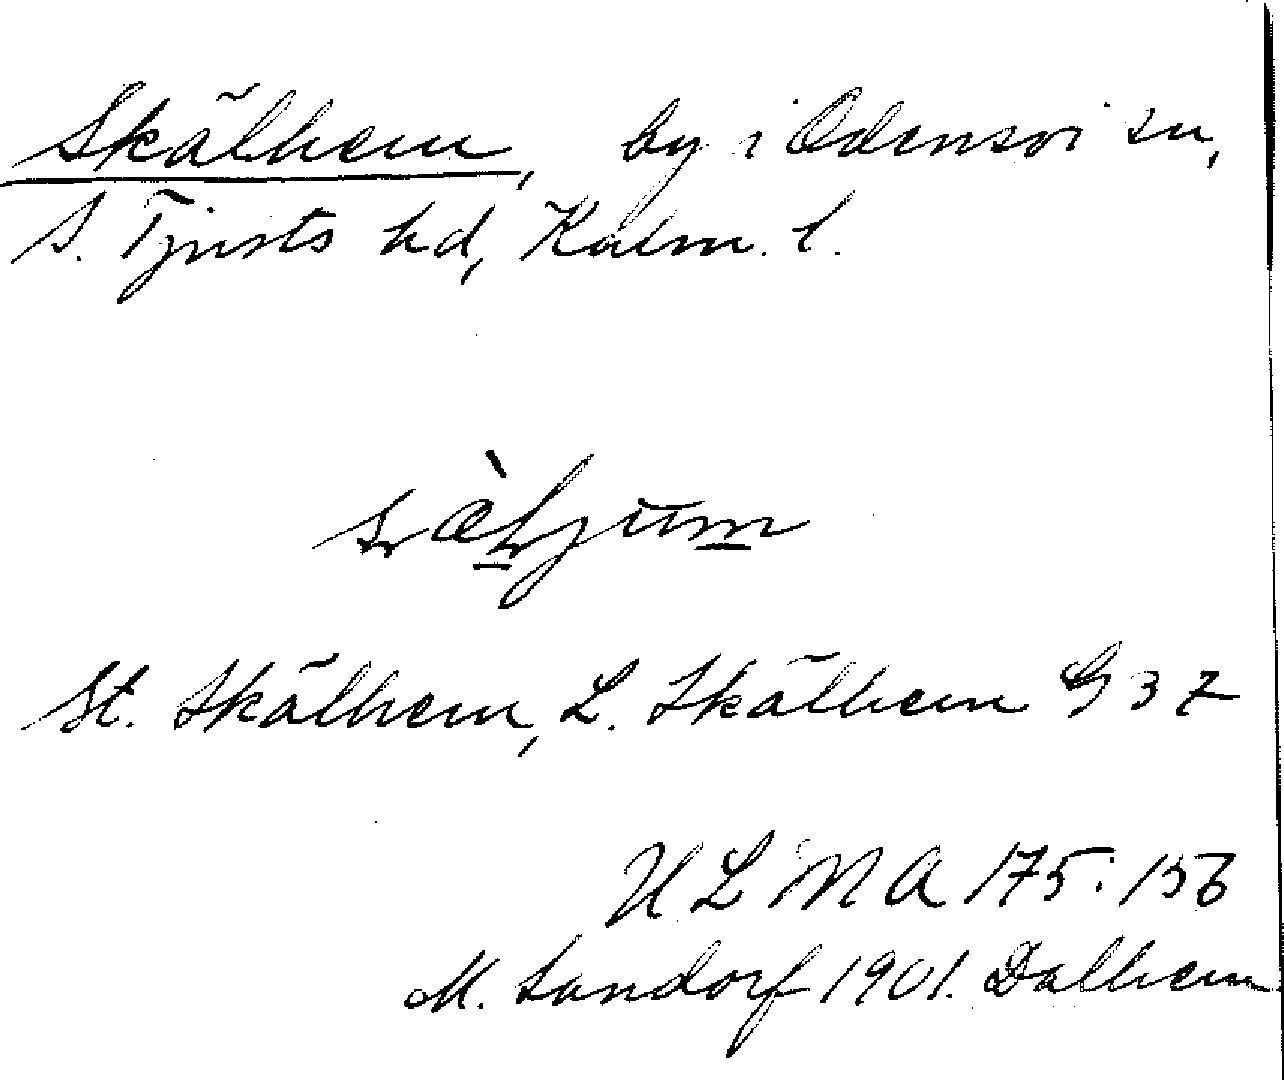 Skälhem, by i Odensvi sn,
S. Tjusts hd, Kalm. l.
St. Skälhem, L. Skälhem G 37
ULMA 175:156
M. Landorf 1901. Dalhem